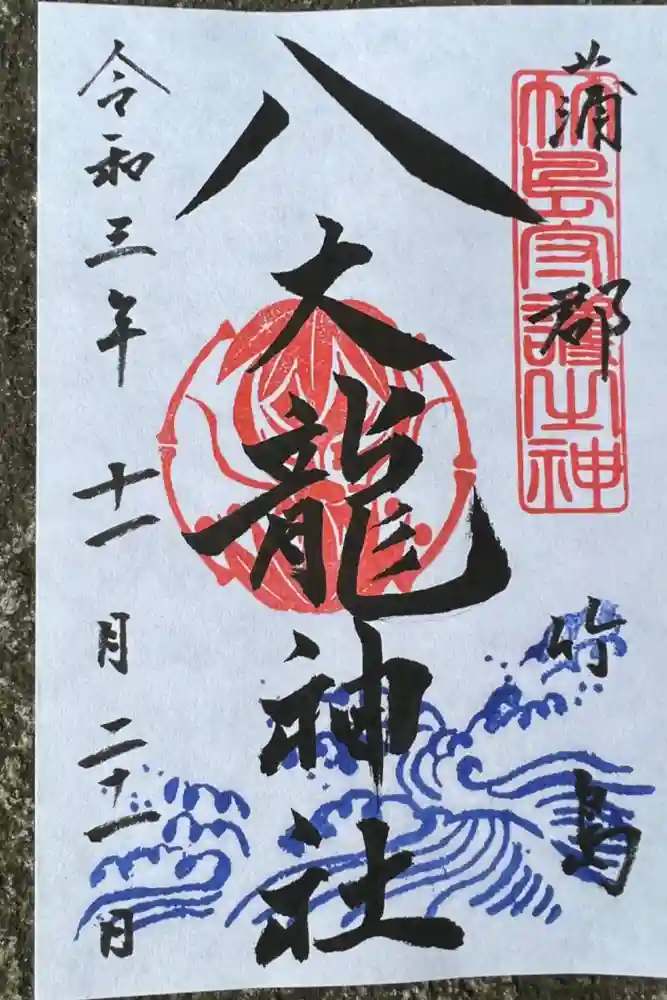 蒲郡
竹島
竹島守護之神
八大龍神社
令和三年十一月二十一日